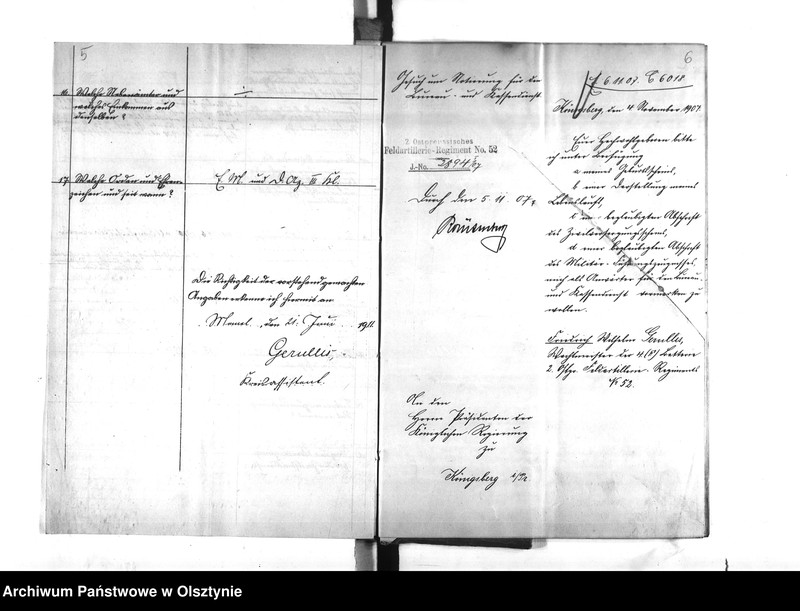 5
16. Welche Nebenämter und
welches Einkommen aus
denselben?
17. Welche Orden und Ehren-
zeichen und seit wann?
E. M. und D. Ag. III Kl.
Die Richtigkeit der vorstehend gemachten
Angaben erkenne ich hiermit an
Memel, den 21. Juni 1911.
Gerullis,
Kreisassistent.
6
6 11 07.
Königsberg, den 4 November 1907.
Gesuch um Notierung für den
Bureau- und Kassendienst
2. Ostpreussisches
Feldartillerie-Regiment No. 52
J.-No.
Durch den 5. 11. 07.
Euer Hochwohlgeboren bitte
ich unter Beifügung
a meines Geburtsscheins,
b einer Darstellung meines
Lebenslaufs,
c einer beglaubigten Abschrift
des Zivilversorgungsscheins,
d einer beglaubigten Abschrift
des Militär-Führungszeugnisses
mich als Anwärter für den Bureau-
und Kassendienst vormerken zu
wollen.
Friedrich Wilhelm Gerullis,
Wachtmeister der 4 (F) Batterie
2. Ostpr. Feldartillerie-Regiments
No 52.
An den
Herrn Präsidenten der
Königlichen Regierung
zu
Königsberg i/Pr.
Archiwum Państwowe w Olsztynie